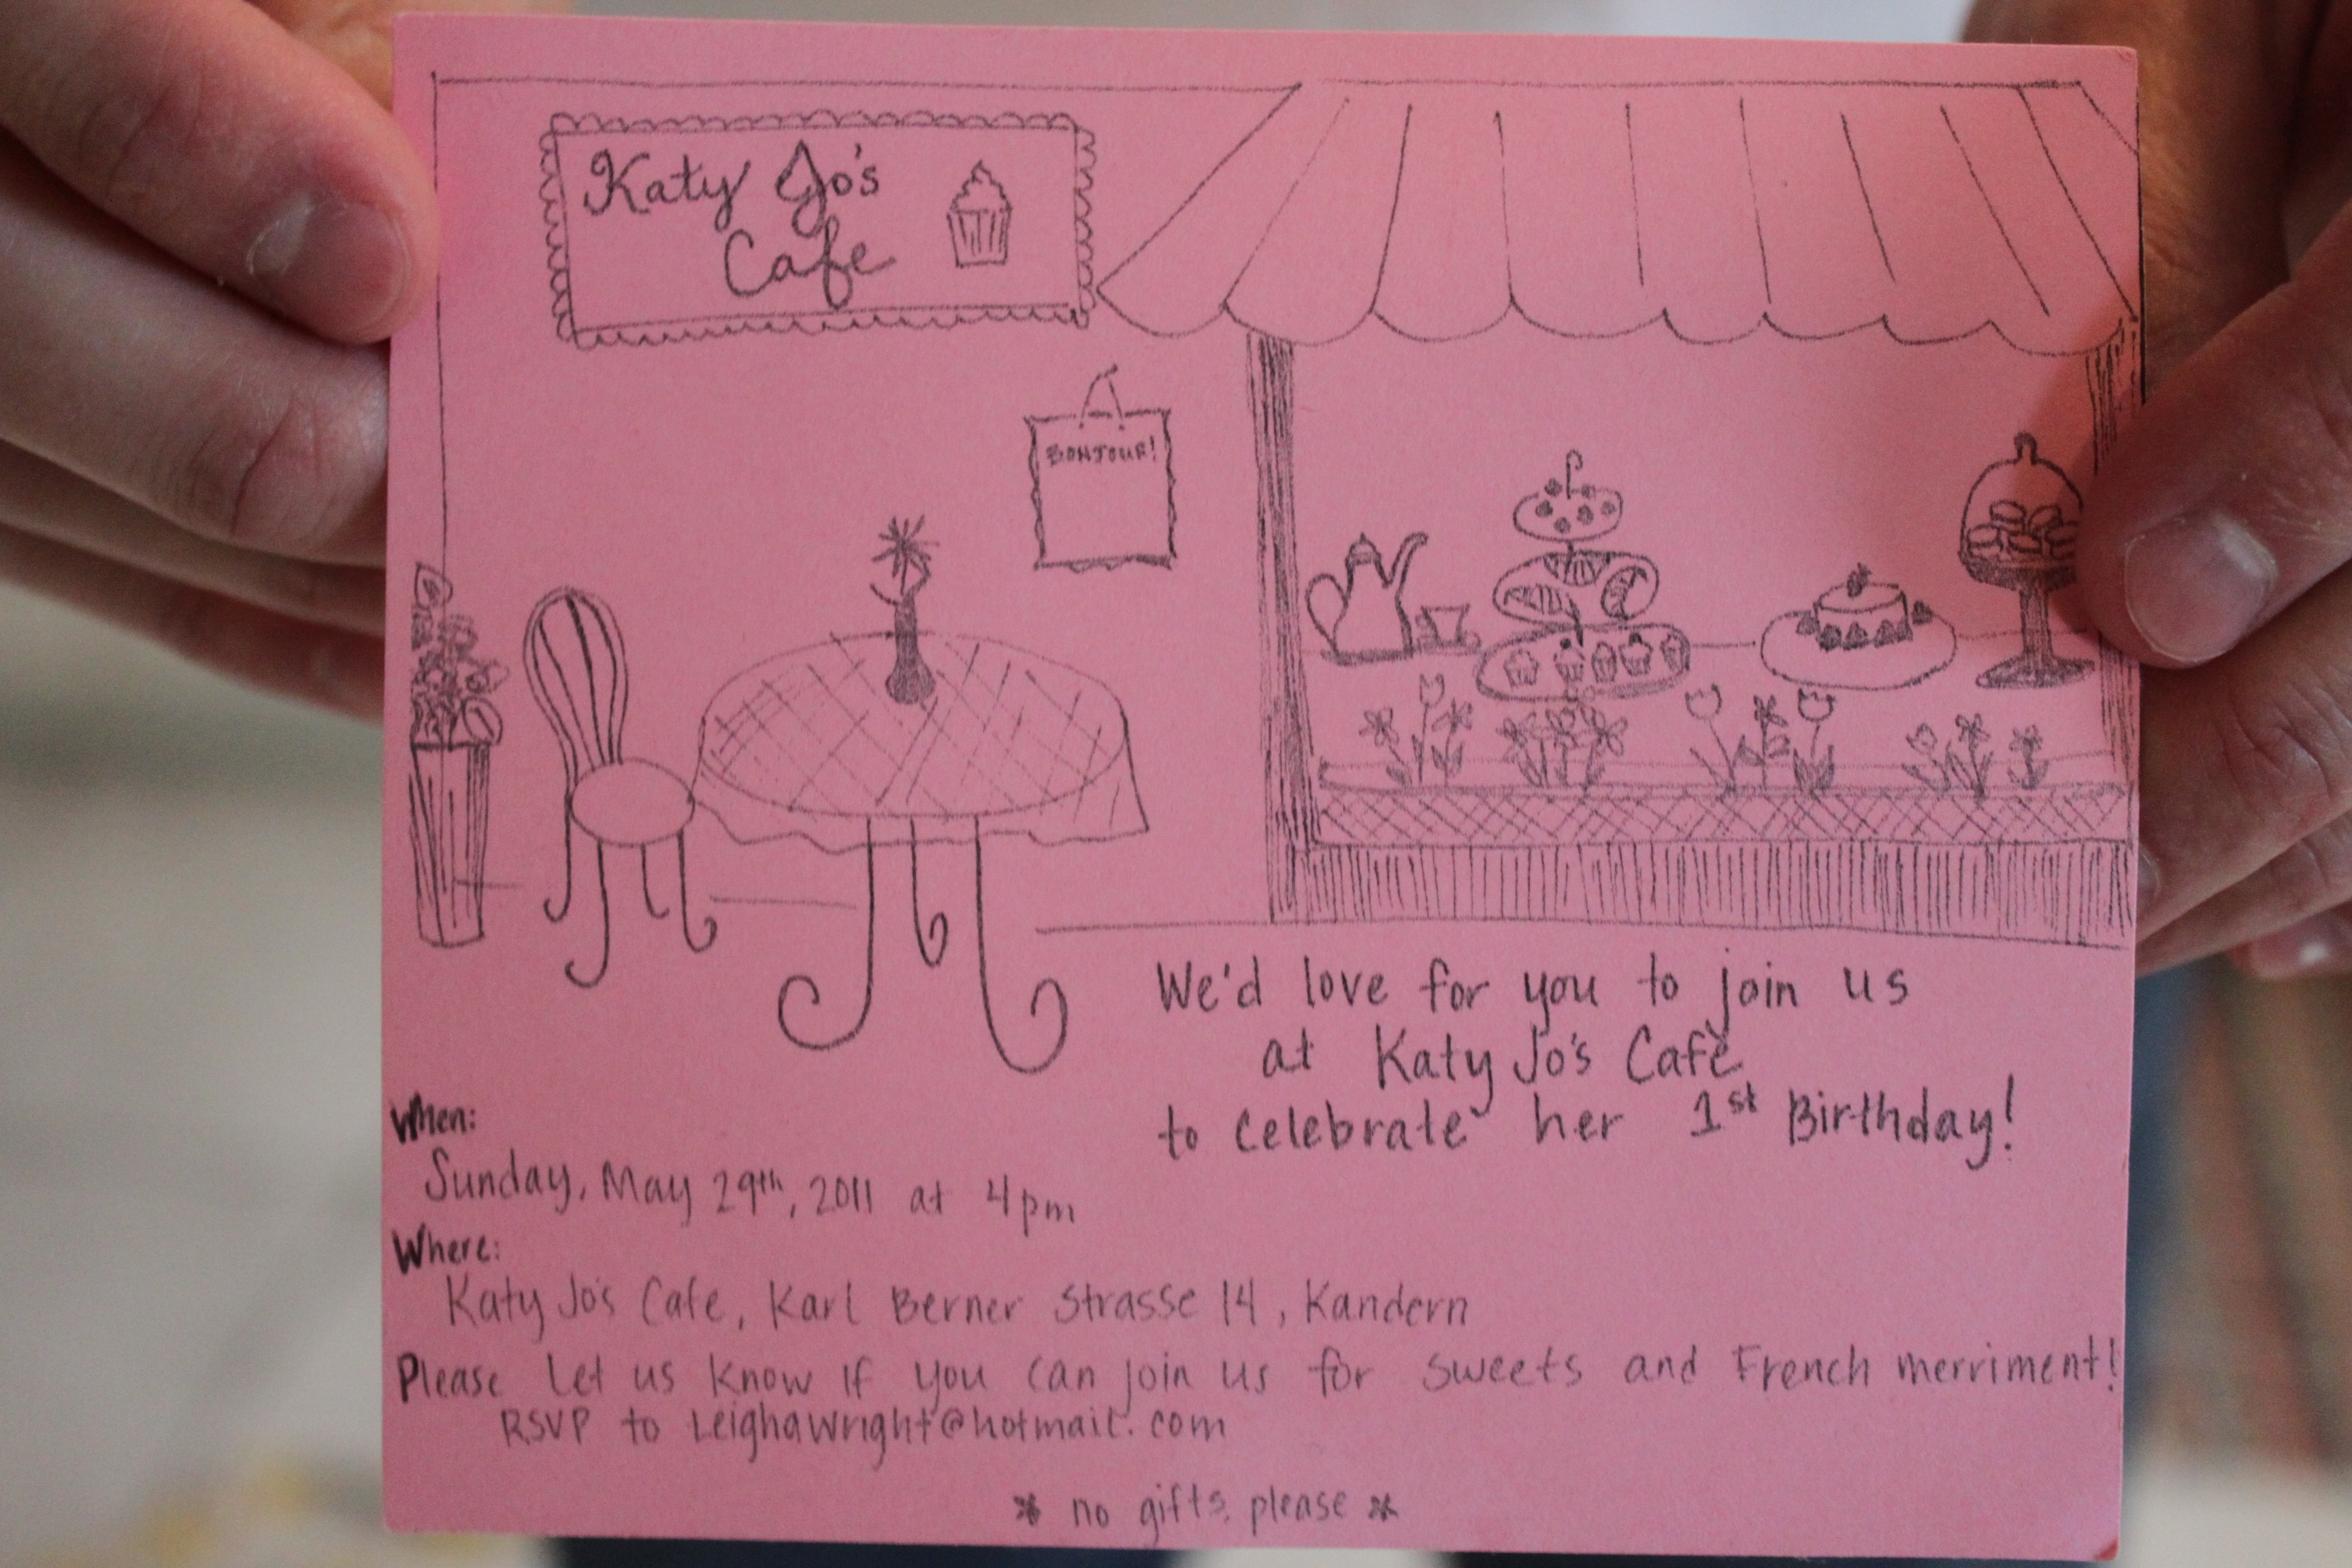 Katy Jo's
Cafe
BONJOUR!
We'd love for you to join us
at Katy Jo's Cafe
to celebrate her 1st Birthday!
When:
Sunday, May 29th, 2011 at 4pm
Where:
Katy Jo's Cafe, Karl Berner Strasse 14, Kandern
Please let us know if you can join us for sweets and French merriment!
RSVP to Leighawright@hotmail.com
* no gifts, please *